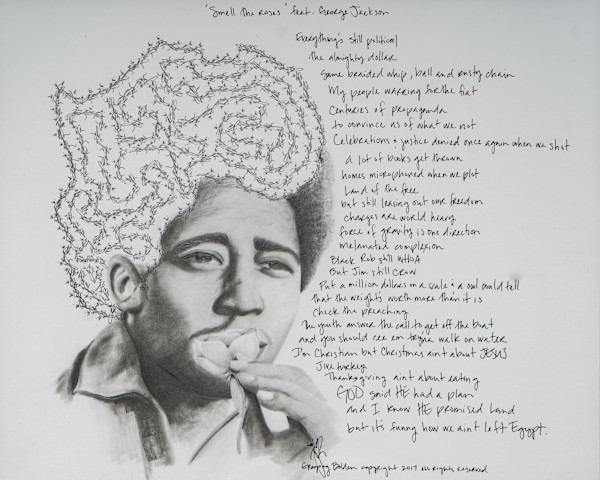 "Smell The Roses" feat. George Jackson
Everything's still political
The almighty dollar
Same braided whip, ball and rusty chain
My people warring for the fiat
Centuries of propaganda
to convince us of what we not
Celebrations & justice denied once again when we shot
a lot of books get thrown
homes microphoned when we plot
Land of the free
but still leaving out our freedom
charges are world heavy
force of gravity is one direction
melanated complexion
Black Rob still WHOA
But Jim still CROW
Put a million dollars on a scale & a owl could tell
that the weights worth more than it is
Check the preaching
The youth answer the call to get off the boat
and you should see em tryna walk on water
I'm Christian but Christmas aint about JESUS
Jive turkey
Thanksgiving aint about eating
GOD said HE had a plan
and I know HE promised Land
but it's funny how we aint left Egypt.
Bolden copyright 2017 All rights reserved